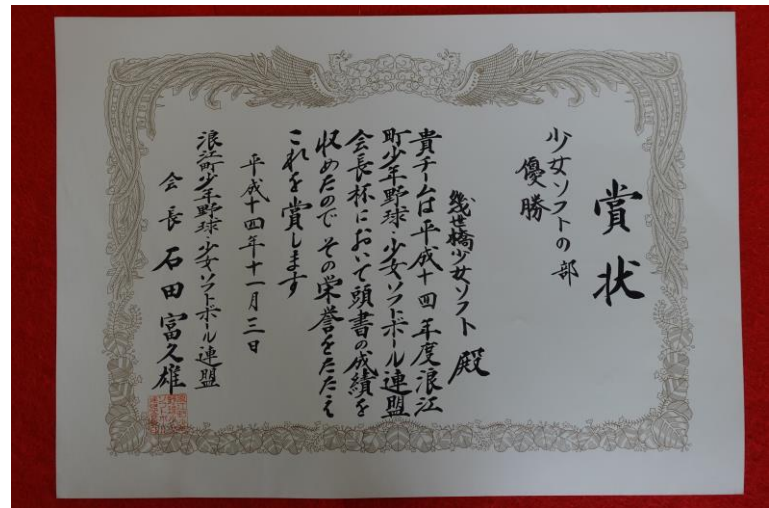 賞状
少女ソフトの部
優勝
幾世橋少女ソフト 殿
貴チームは平成十四年度浪江
町少年野球・少女ソフトボール連盟
会長杯において頭書の成績を
収めたので その栄誉をたたえ
これを賞します
平成十四年十一月三日
浪江町少年野球・少女ソフトボール連盟
会長 石田富久雄